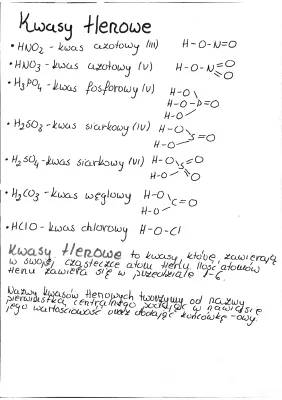 Kwasy tlenowe
• HNO₂ - kwas azotowy (III) H-O-N=O
• HNO₃ - kwas azotowy (V) H-O-N=O =O
• H₃PO₄ - kwas fosforowy (V) H-O H-O-P=O H-O
• H₂SO₃ - kwas siarkowy (IV) H-O H-O S=O
• H₂SO₄ - kwas siarkowy (VI) H-O H-O S=O =O
• H₂CO₃ - kwas węglowy H-O H-O C=O
• HClO - kwas chlorowy H-O-Cl
Kwasy tlenowe to kwasy, które zawierają
w swojej cząsteczce atom tlenu. Ilość atomów
tlenu zawiera się w przedziale 1-6.
Nazwy kwasów tlenowych tworzymy od nazwy
pierwiastka centralnego podając w nawiasie
jego wartościowość oraz dodając końcówkę -owy.